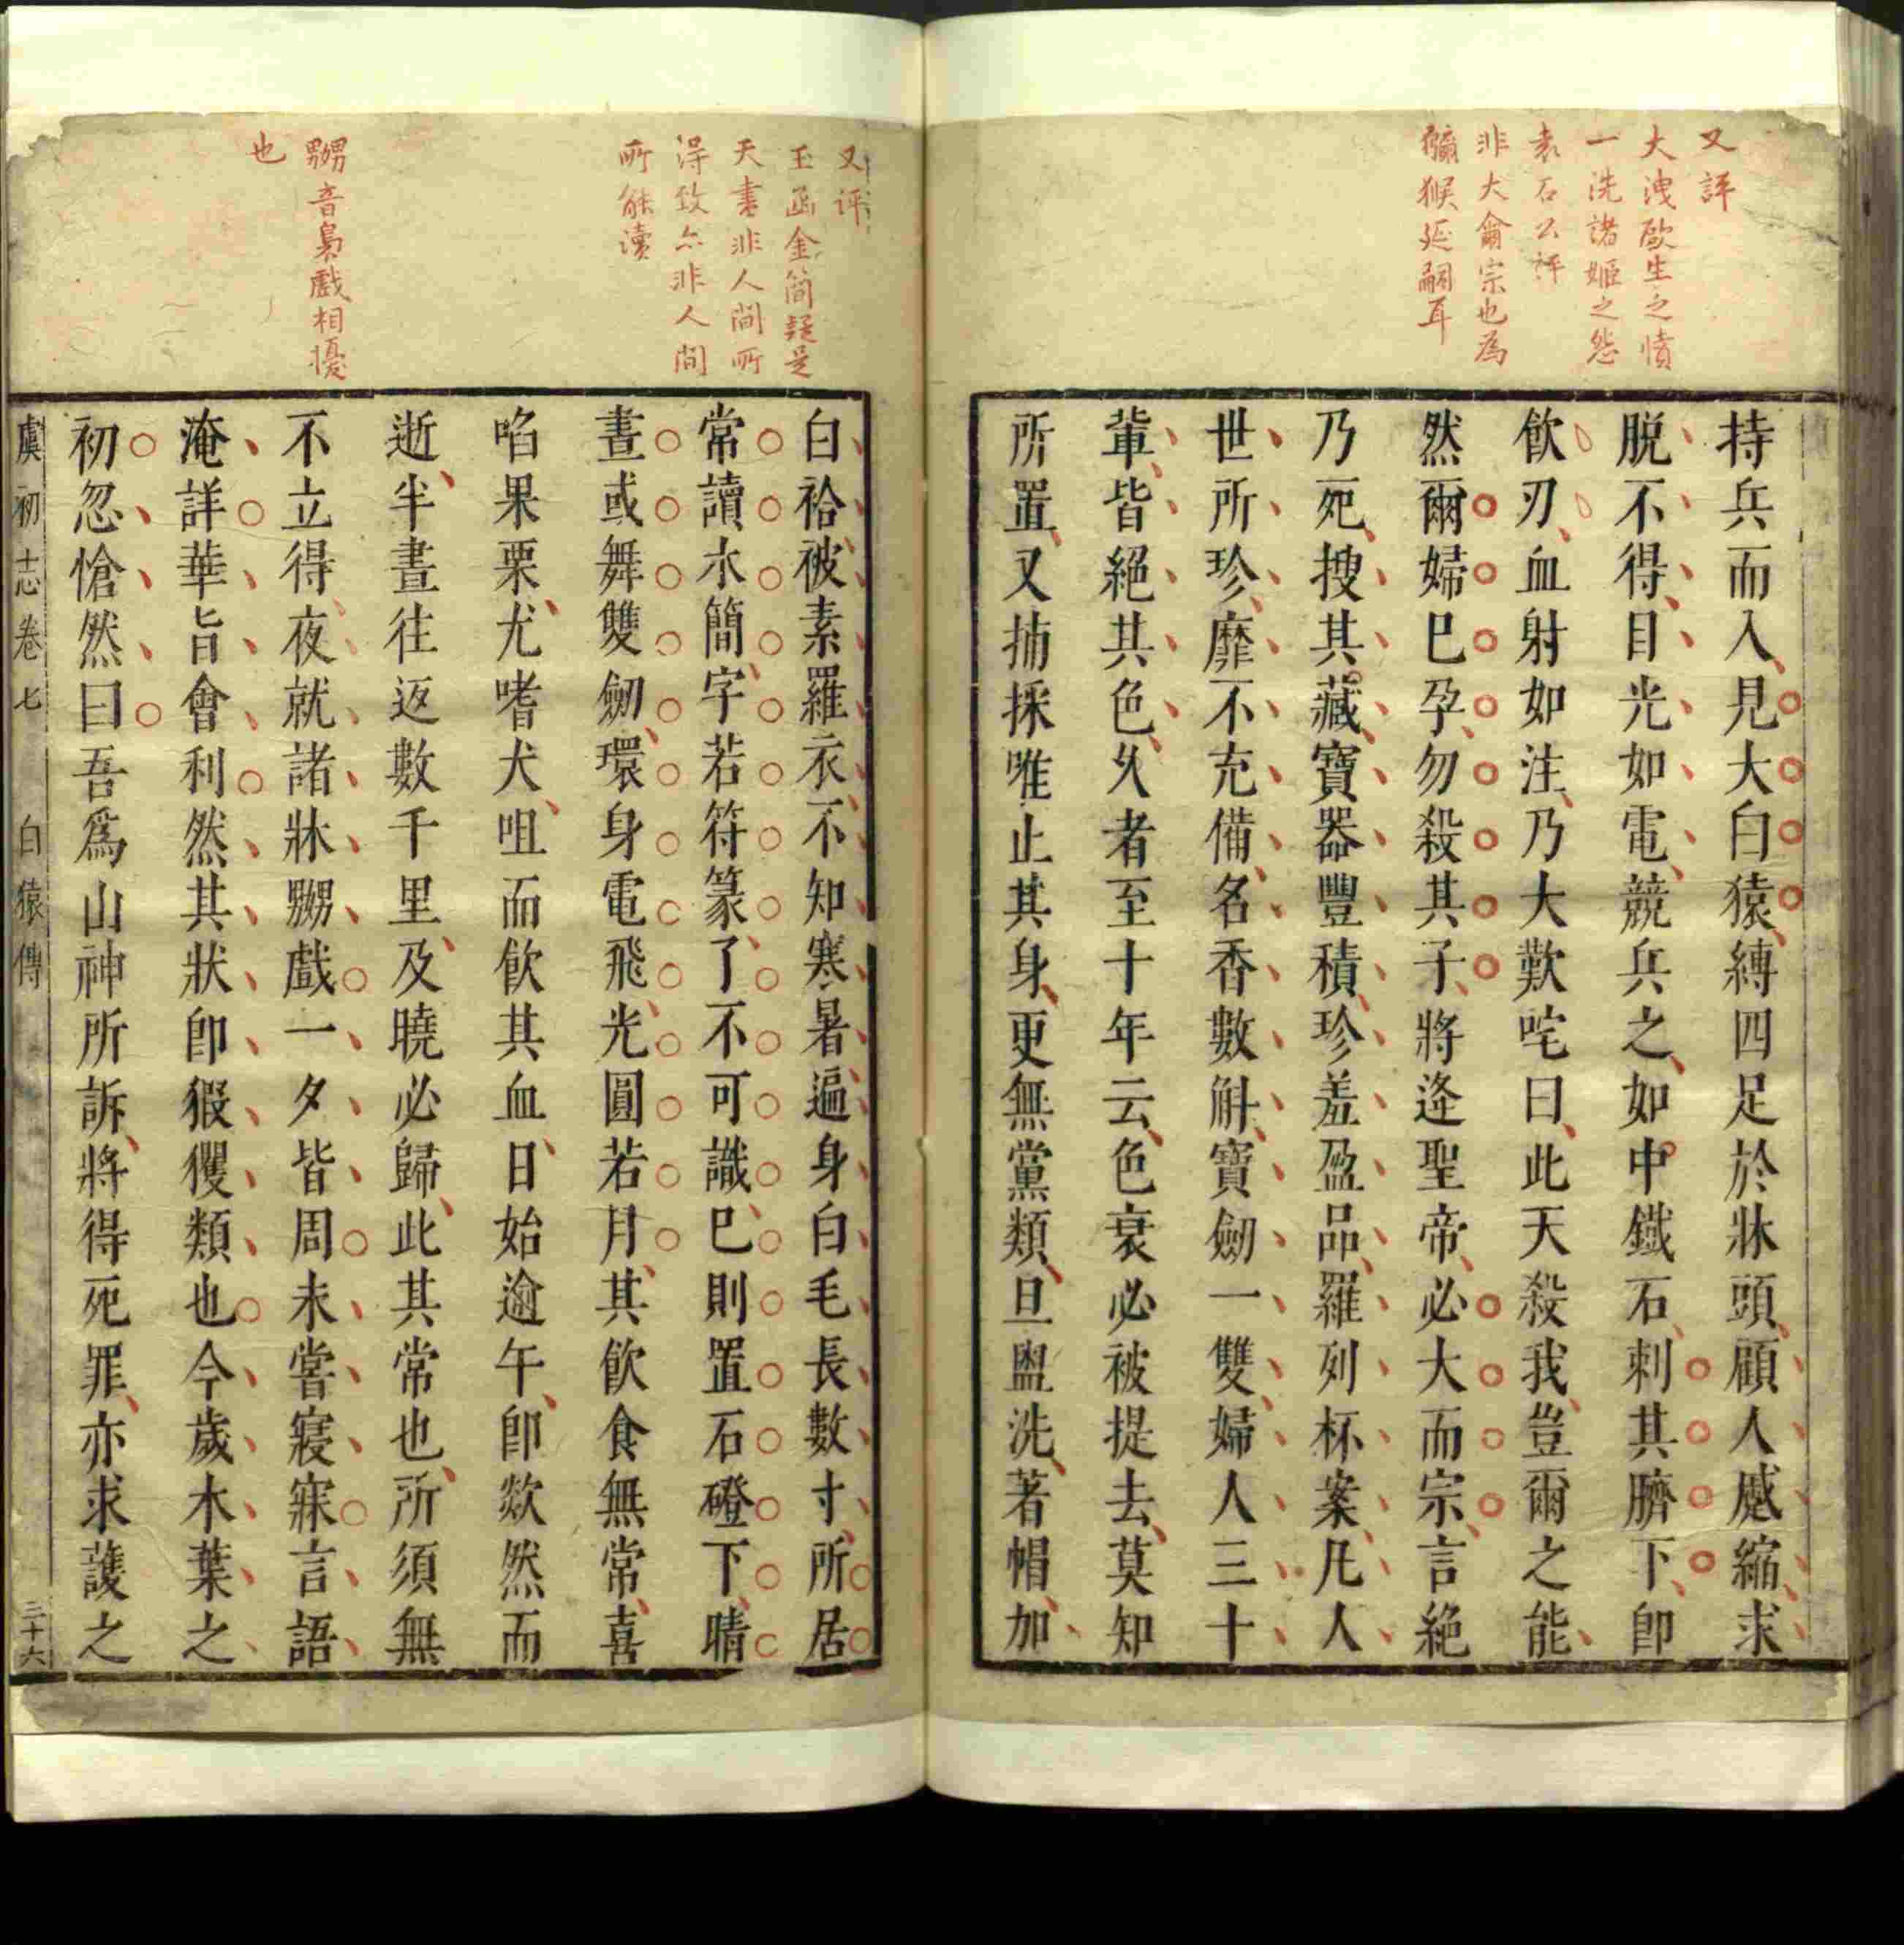 又評
大洩歐生之憤
一洗諸姬之怨
袁石公評
非大龠宗也為
獼猴延嗣耳
持兵而入見大白猿縛四足於牀頭顧人蹙縮求
脱不得目光如電競兵之如中鐵石刺其臍下卽
飲刃血射如注乃大歎咤曰此天殺我豈爾之能
然爾婦巳孕勿殺其子將逢聖帝必大而宗言絶
乃死搜其藏寶器豐積珍羞盈品羅列杯案凡人
世所珍靡不充備名香數斛寶劒一雙婦人三十
軰皆絕其色乆者至十年云色衰必被提去莫知
所置又捕採唯止其身更無黨類旦盥洗著帽加
又評
玉函金簡疑是
天書非人間所
得致亦非人間
所能讀
嬲音裊戲相擾
也
白袷被素羅衣不知寒暑遍身白毛長數寸所居
常讀木簡字若符篆了不可識巳則置石磴下晴
晝或舞雙劒環身電飛光圓若月其飲食無常喜
啗果栗尤嗜犬咀而飲其血日始逾午卽欻然而
逝半晝往返數千里及曉必歸此其常也所須無
不立得夜就諸牀嬲戲一夕皆周未嘗寢寐言語
淹詳華旨會利然其狀卽猳玃類也今歲木葉之
初忽愴然曰吾爲山神所訴將得死罪亦求護之
虞初志卷七 白猿傳 三十六